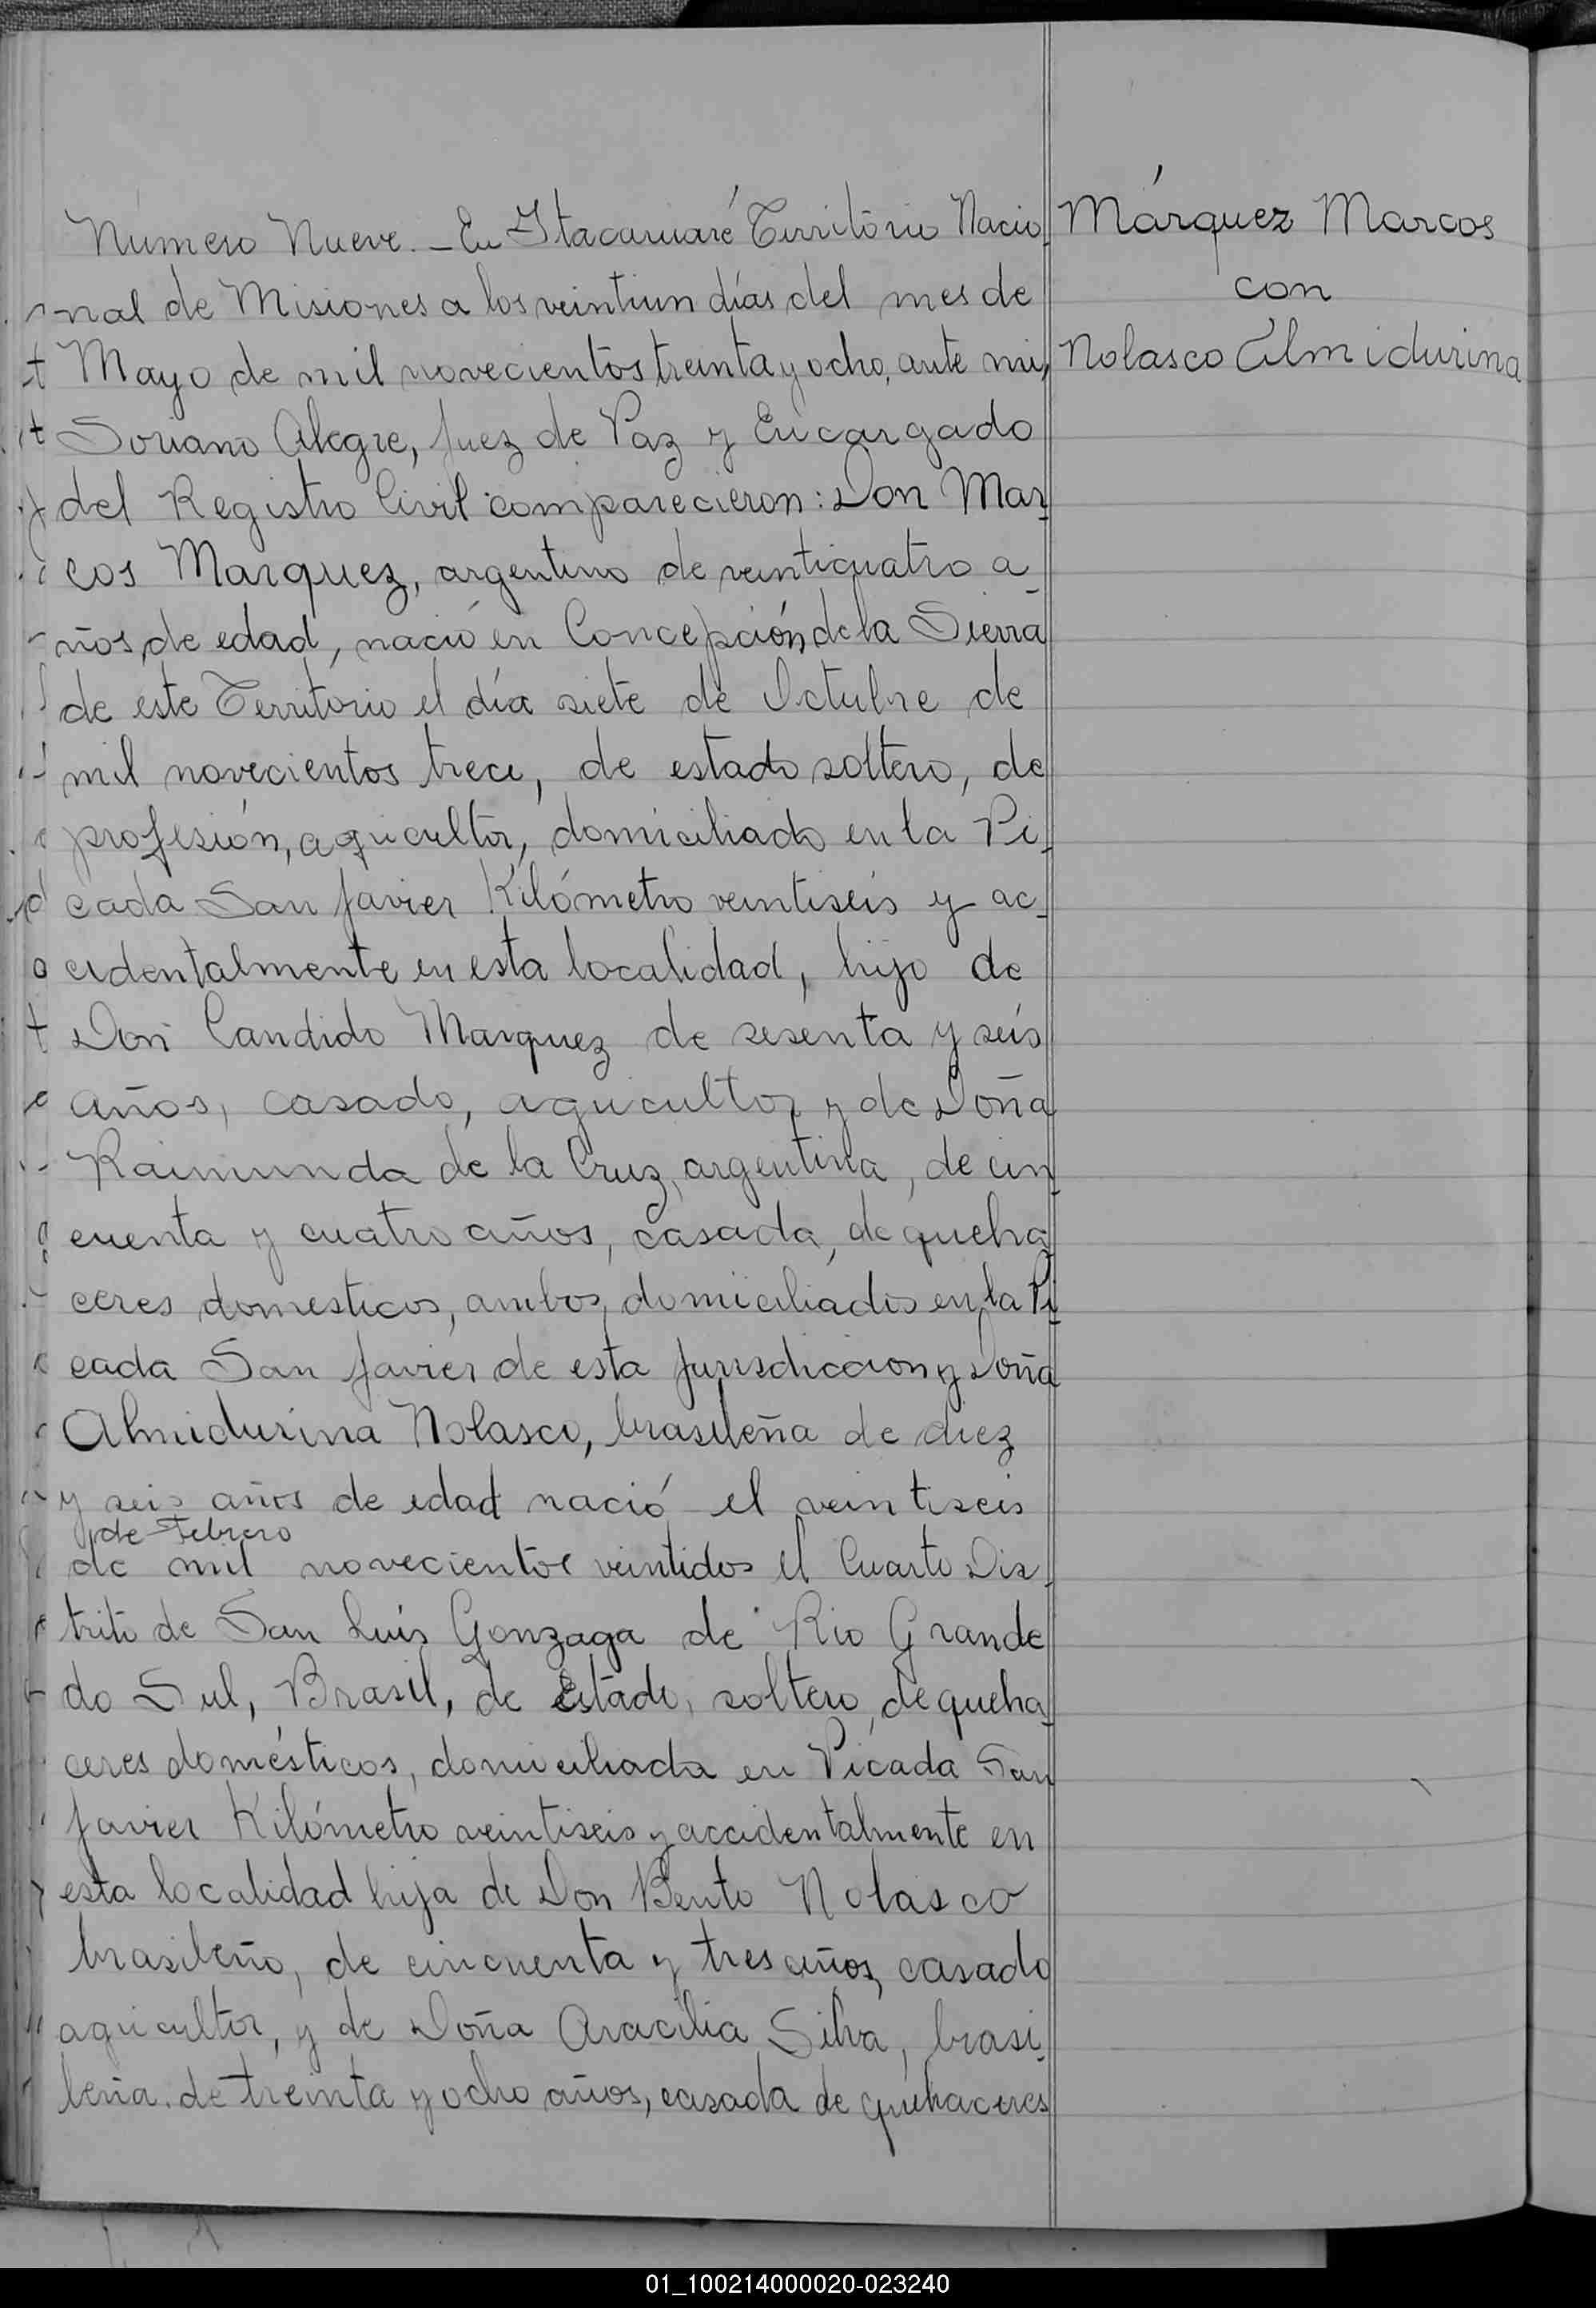 Número Nueve.- En Itacaruaré Territorio Nacio-
nal de Misiones a los veintiun días del mes de
Mayo de mil novecientos treinta y ocho, ante mi,
Soriano Alegre, Juez de Paz y Encargado
del Registro Civil comparecieron: Don Mar-
cos Marquez, argentino de veinticuatro a-
ños de edad, nació en Concepción de la Sierra
de este Territorio el día siete de Octubre de
mil novecientos trece, de estado soltero, de
profesión, agricultor, domiciliado en la Pi-
cada San Javier Kilómetro veintiseis y ac-
cidentalmente en esta localidad, hijo de
Don Candido Marquez de sesenta y seis
años, casado, agricultor y de Doña
Raimunda de la Cruz, argentina, de cin-
cuenta y cuatro años, casada, de queha-
ceres domesticos, ambos domiciliados en la Pi-
cada San Javier de esta Jurisdiccion y Doña
Almidurina Nolasco, brasileña de diez
y seis años de edad nació el veintiseis
de Febrero
de mil novecientos veintidos el Cuarto Dis-
trito de San Luis Gonzaga de Rio Grande
do Sul, Brasil, de Estado, soltero, de queha-
ceres domésticos, domiciliada en Picada San
Javier Kilómetro veintiseis y accidentalmente en
esta localidad hija de Don Bento Nolasco
brasileño, de cincuenta y tres años, casado
agricultor, y de Doña Aracilia Silva, brasi-
leña. de treinta y ocho años, casada de quehaceres
Márquez Marcos
con
Nolasco Almidurina
01_100214000020-023240